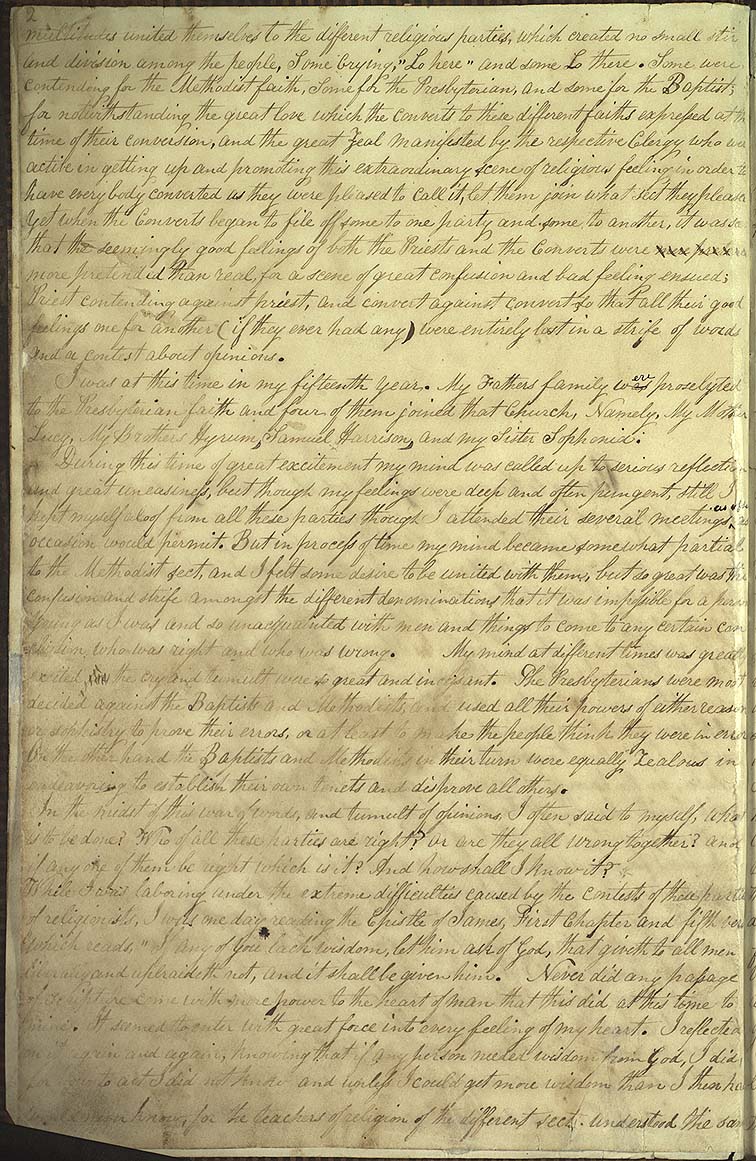 2
multitudes united themselves to the different religious parties, which created no small stir
and division among the people, Some Crying, "Lo here" and some Lo there. Some were
contending for the Methodist faith, Some for the Presbyterian, and some for the Baptist;
for notwithstanding the great love which the converts to these different faiths expressed at the
time of their conversion, and the great Zeal manifested by the respective Clergy who were
active in getting up and promoting this extraordinary scene of religious feeling in order to
have everybody converted as they were pleased to call it, let them join what sect they pleased
Yet when the Converts began to file off some to one party and some to another, it was seen
that the seemingly good feelings of both the Priests and the Converts were
more pretended than real, for a scene of great confusion and bad feeling ensued;
Priest contending against priest, and convert against convert so that all their good
feelings one for another (if they ever had any) were entirely lost in a strife of words
and a contest about opinions.
I was at this time in my fifteenth year. My Fathers family were proselyted
to the Presbyterian faith and four of them joined that Church, Namely, My Mother
Lucy, My Brothers Hyrum, Samuel Harrison, and my Sister Sophonia.
During this time of great excitement my mind was called up to serious reflection
and great uneasiness, but though my feelings were deep and often pungent, still I
kept myself aloof from all these parties though I attended their several meetings as often as
occasion would permit. But in process of time my mind became somewhat partial
to the Methodist sect, and I felt some desire to be united with them, but so great was the
confusion and strife amongst the different denominations that it was impossible for a person
young as I was and so unacquainted with men and things to come to any certain con
clusion who was right and who was wrong. My mind at different times was greatly
excited for the cry and tumult were so great and incessant. The Presbyterians were most
decided against the Baptists and Methodists, and used all their powers of either reason
or sophistry to prove their errors, or at least to make the people think they were in error
On the other hand the Baptists and Methodists in their turn were equally Zealous in
endeavoring to establish their own tenets and disprove all others.
In the midst of this war of words, and tumult of opinions, I often said to myself, what
is to be done? Who of all these parties are right? Or are they all wrong together? and
if any one of them be right which is it? And how shall I know it?
While I was laboring under the extreme difficulties caused by the contests of these parties
of religionists, I was one day reading the Epistle of James, First Chapter and fifth verse
which reads, "If any of you lack wisdom, let him ask of God, that giveth to all men
liberally and upbraideth not, and it shall be given him. Never did any passage
of scripture come with more power to the heart of man that this did at this time to
mine. It seemed to enter with great force into every feeling of my heart. I reflected
on it again and again, knowing that if any person needed wisdom from God, I did
for how to act I did not know and unless I could get more wisdom than I then had
would never know, for the teachers of religion of the different sects understood the same